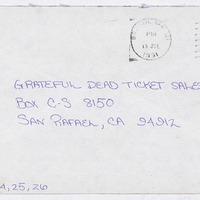 PM
1991
GRATEFUL DEAD TICKET SALES
BOX C-S 8150
SAN RAFAEL, CA 94912
4,25,26